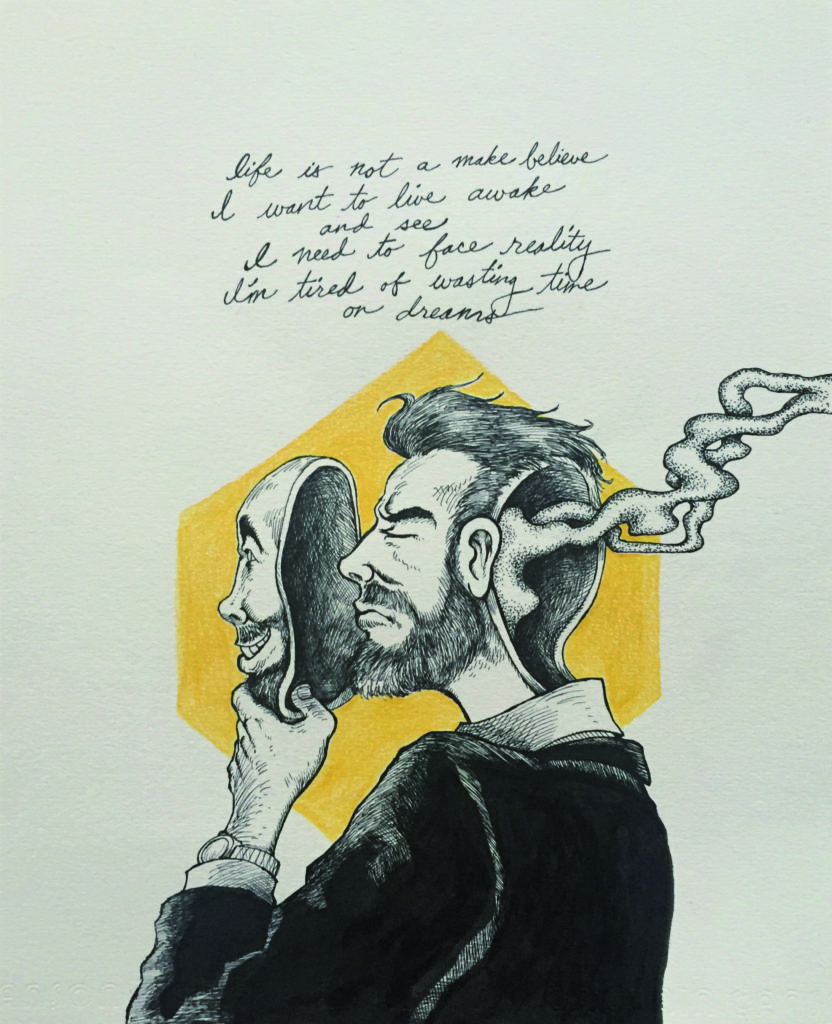 life is not a make believe
I want to live awake
and see
I need to face reality
I'm tired of wasting time
on dreams